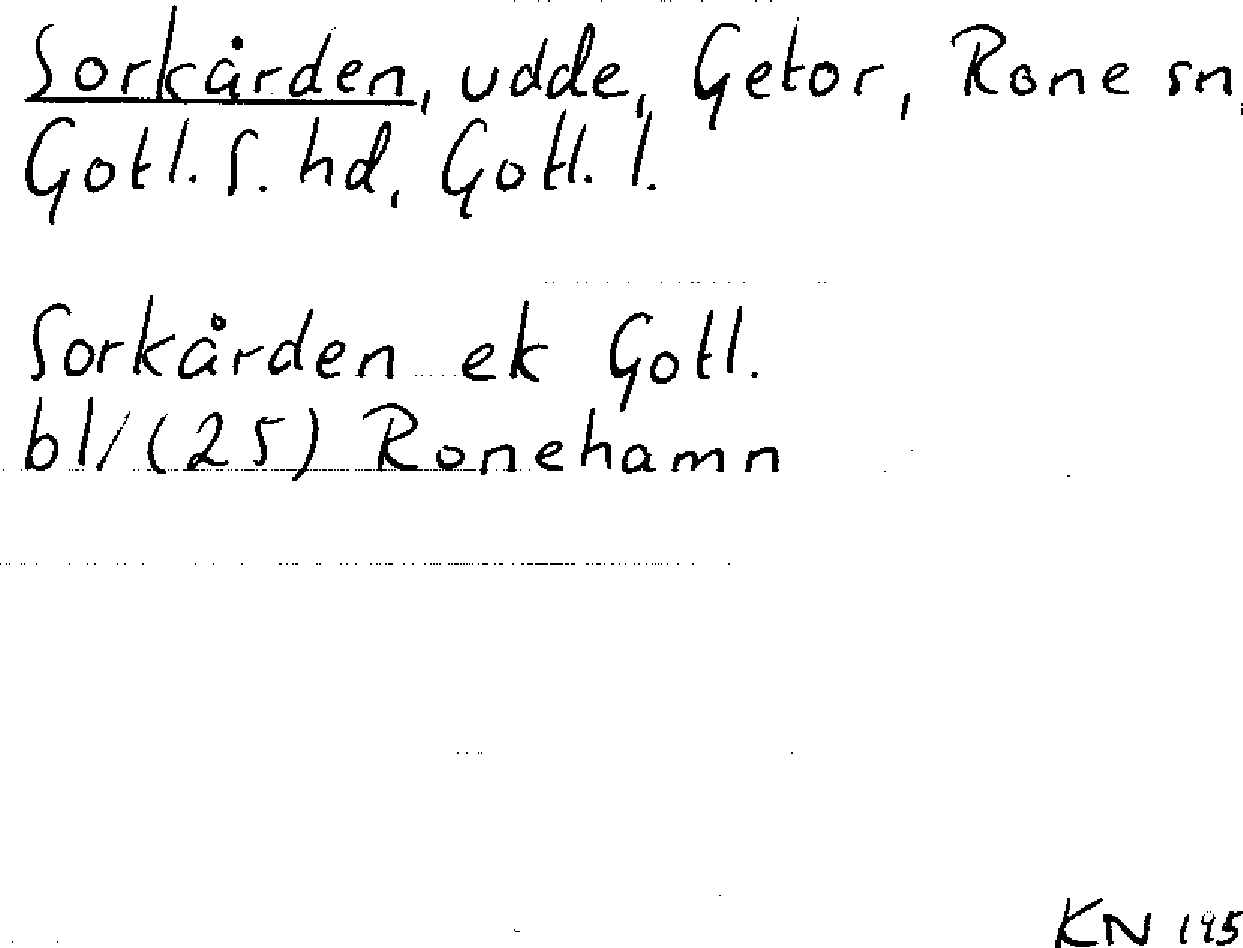 Sorkården, udde, Getor, Rone sn,
Gotl. S. hd, Gotl. l.
Sorkården ek Gotl.
bl/(25) Ronehamn
KN 195